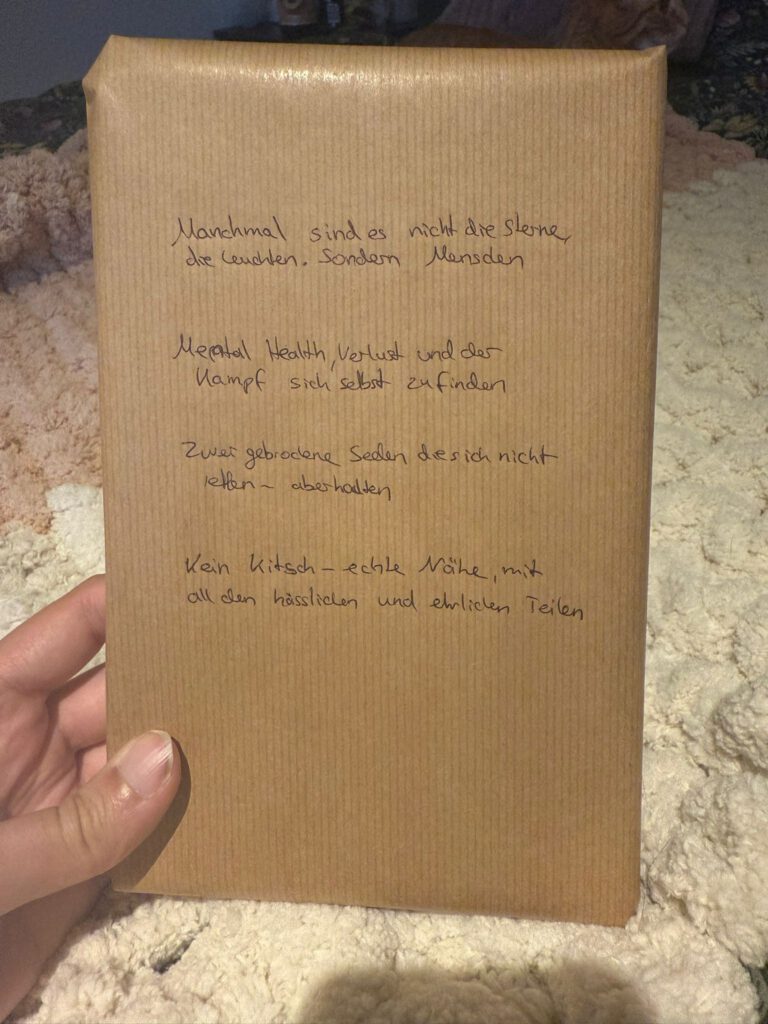 Manchmal sind es nicht die Sterne,
die leuchten. Sondern Menschen
Mental Health, Verlust und der
Kampf sich selbst zu finden
Zwei gebrochene Seelen die sich nicht
retten – aber halten
Kein Kitsch – echte Nähe, mit
all den hässlichen und ehrlichen Teilen